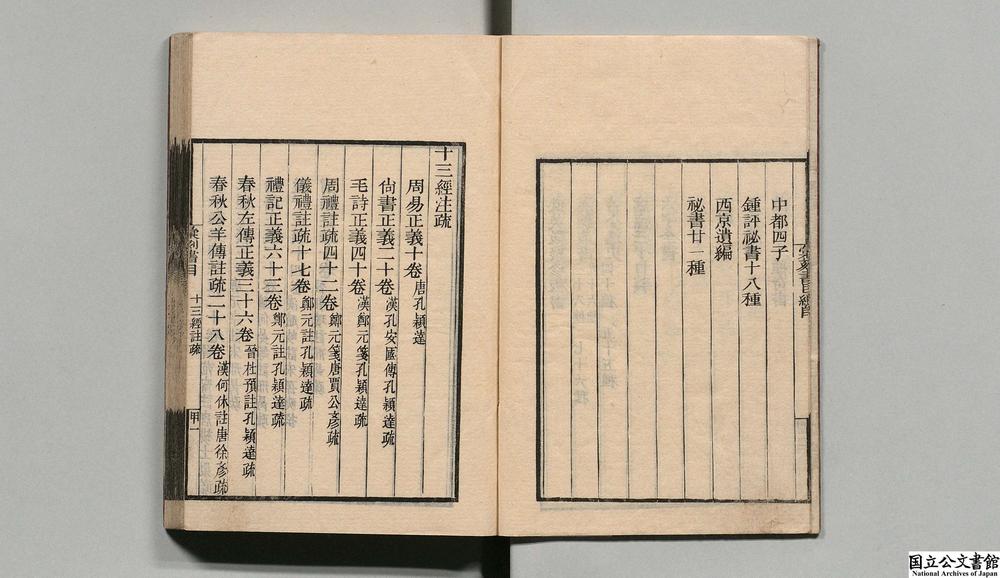 中都四子
鍾評祕書十八種
西京遺編
祕書廿一種
十三經注疏
周易正義十卷 唐孔穎達
尙書正義二十卷 漢孔安國傳孔穎達疏
毛詩正義四十卷 漢鄭元箋孔穎達疏
周禮註疏四十二卷 鄭元箋唐賈公彥疏
儀禮註疏十七卷 鄭元註孔穎達疏
禮記正義六十三卷 鄭元註孔穎達疏
春秋左傳正義三十六卷 晉杜預註孔穎達疏
春秋公羊傳註疏二十八卷 漢何休註唐徐彥疏
彙刻書目 十三經註疏 甲一
国立公文書館
National Archives of Japan